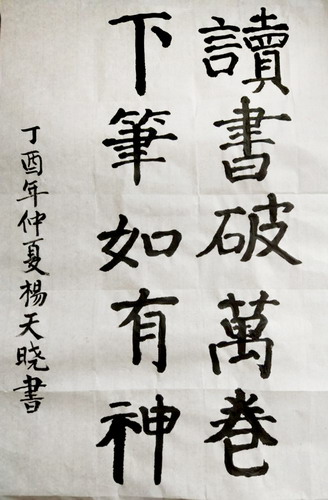 讀書破萬卷
下筆如有神
丁酉年仲夏楊天晓書